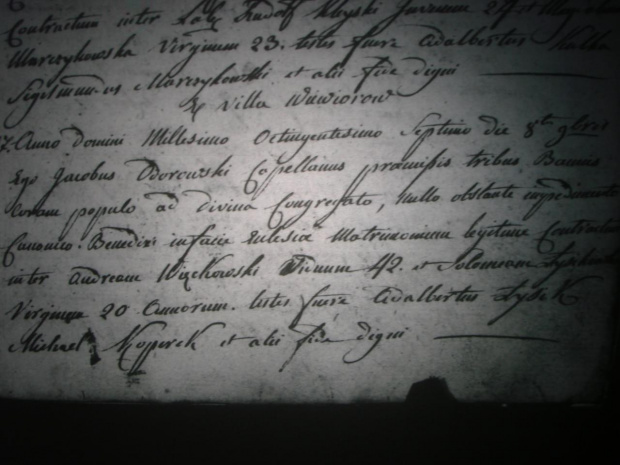 Contractum inter Rudolf Juvenem 24 et
Marczykowska Virginem 23. testes fuere Adalbertus Kulka
Sigismundus Marczykowski et alii fide digni
Ex Villa Wiewiorow
7. Anno Domini Millesimo Octingentesimo Septimo die 8tc 9bris
Ego Jacobus Odorowski Capellanus promissis tribus Bannis
Coram populo ad divina Congregato, nullo obstante impedimento
Canonico. Benedixi in facie Eclesiæ Matrimonium legitime Contractum
inter Andream Wiȩckowski Viduum 42. et Solomeam
Virginem 20 Annorum. testes fuere Adalbertus Lysek
Michael Koperek et alii fide digni